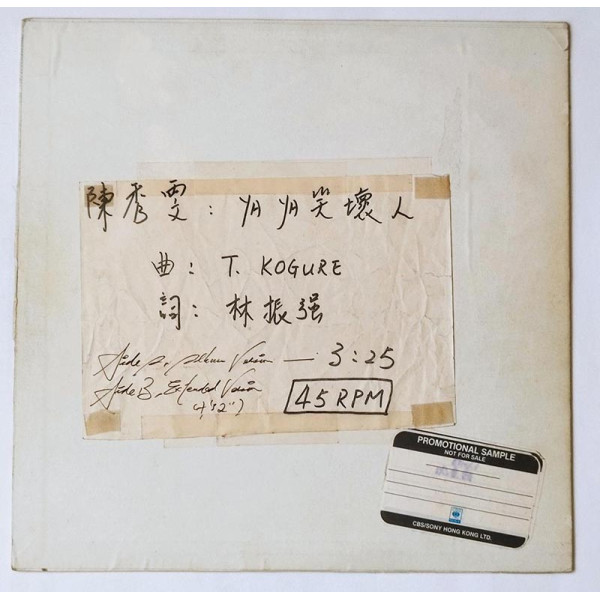 陳秀雯: 笑壞人
曲: T. KOGURE
詞: 林振强
Side A. Album Version — 3:25
Side B, Extended Version
45 RPM
PROMOTIONAL SAMPLE
NOT FOR SALE
CBS/SONY HONG KONG LTD.